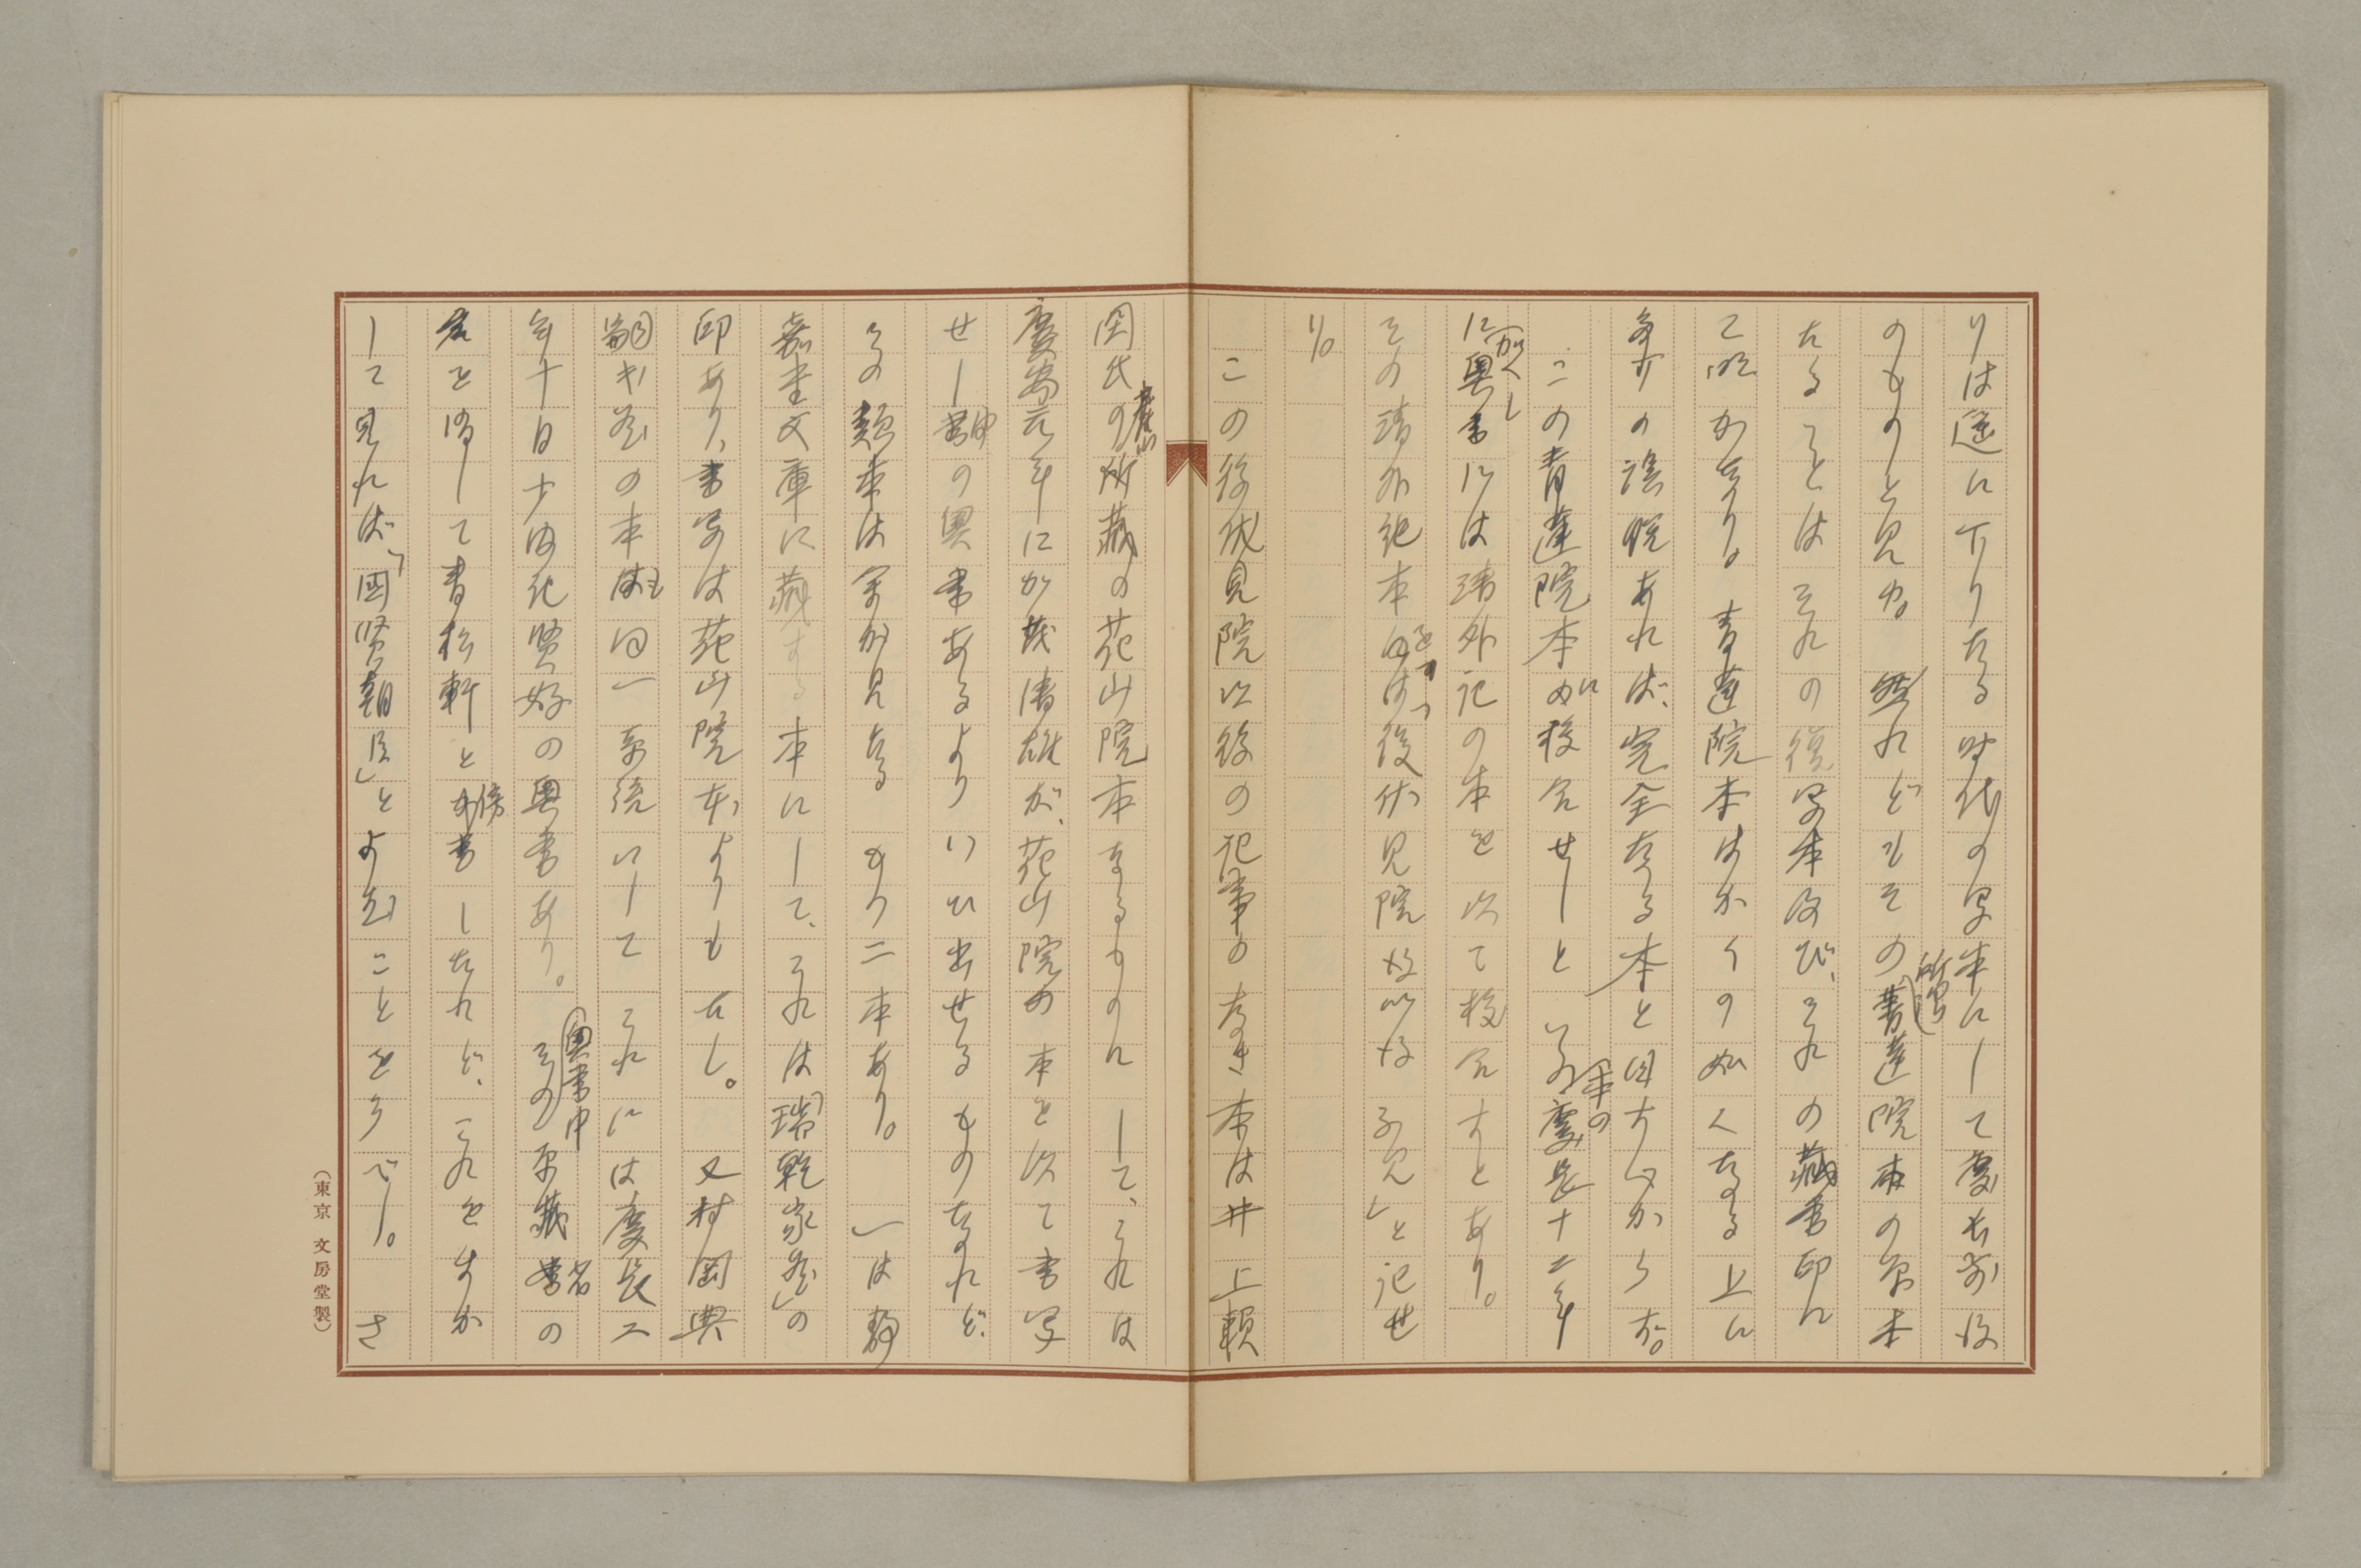 りは遥に下りたる時代の写本にして慶長前後
のものと見ゆ。然れどもその所謂青蓮院本の原本
たることはそれの複写本及び、それの蔵書印に
て明かなり。青蓮院本はかくの如くなる上に
多少の誤脱あれば、完全なる本と目すべからず。
この青蓮院本に校合せしといふ本の慶長十二年
に奥書には諱外記の本を以て校合すとあり。
その諱外記本をば後伏見院以後と記せ
り。
この後伏見院以後の記事のなき本は井上頼
圀氏の旧所蔵の花山院本なるものにして、これは
慶安元年に賀茂清雄が、花山院の本を以て書写
せし由の奥書あるよりいひ出せるものなれど、
その類本は余が見たるもの二本あり。一は静
嘉堂文庫に蔵する本にして、それは「瑞乾家蔵」の
印あり、書写は花山院本よりも古し。又村岡典
嗣氏蔵の本も同一系統にしてこれには慶長二
年十日少納言賢好の奥書あり。奥書中原蔵者の
名を消して青松軒と傍書したれど、これをすか
して見れば「国賢朝臣」とよむことをうべし。さ
(東京 文房堂製)